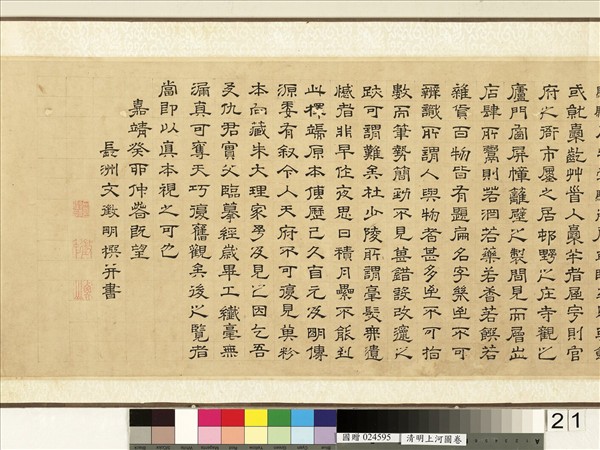 府之衙市廛之居邨野之庄寺觀之
廬門窗屏幛籬壁之製間見而層出
店肆所鬻則若酒若藥若香若饌若
雜貨百物皆有題扁名字纖至不可
辨識所謂人與物者甚多至不可指
數而筆勢簡勁不見其錯誤改竄之
跌可謂難矣杜少陵所謂毫髮無遺
憾者非早作夜思日積月纍不能到
此 原本傳歷已久自元及明傳
源委有叙今入天府不可復見其粉
本尚藏朱大理家 及見之因乞吾
友仇君實父臨摹經歲畢工纖毫無
漏真可奪天巧復舊觀矣後之覽者
當即以真本視之可也
嘉靖癸卯仲春既望
長洲文徵明撰并書
國贈 024595 清明上河圖卷
21